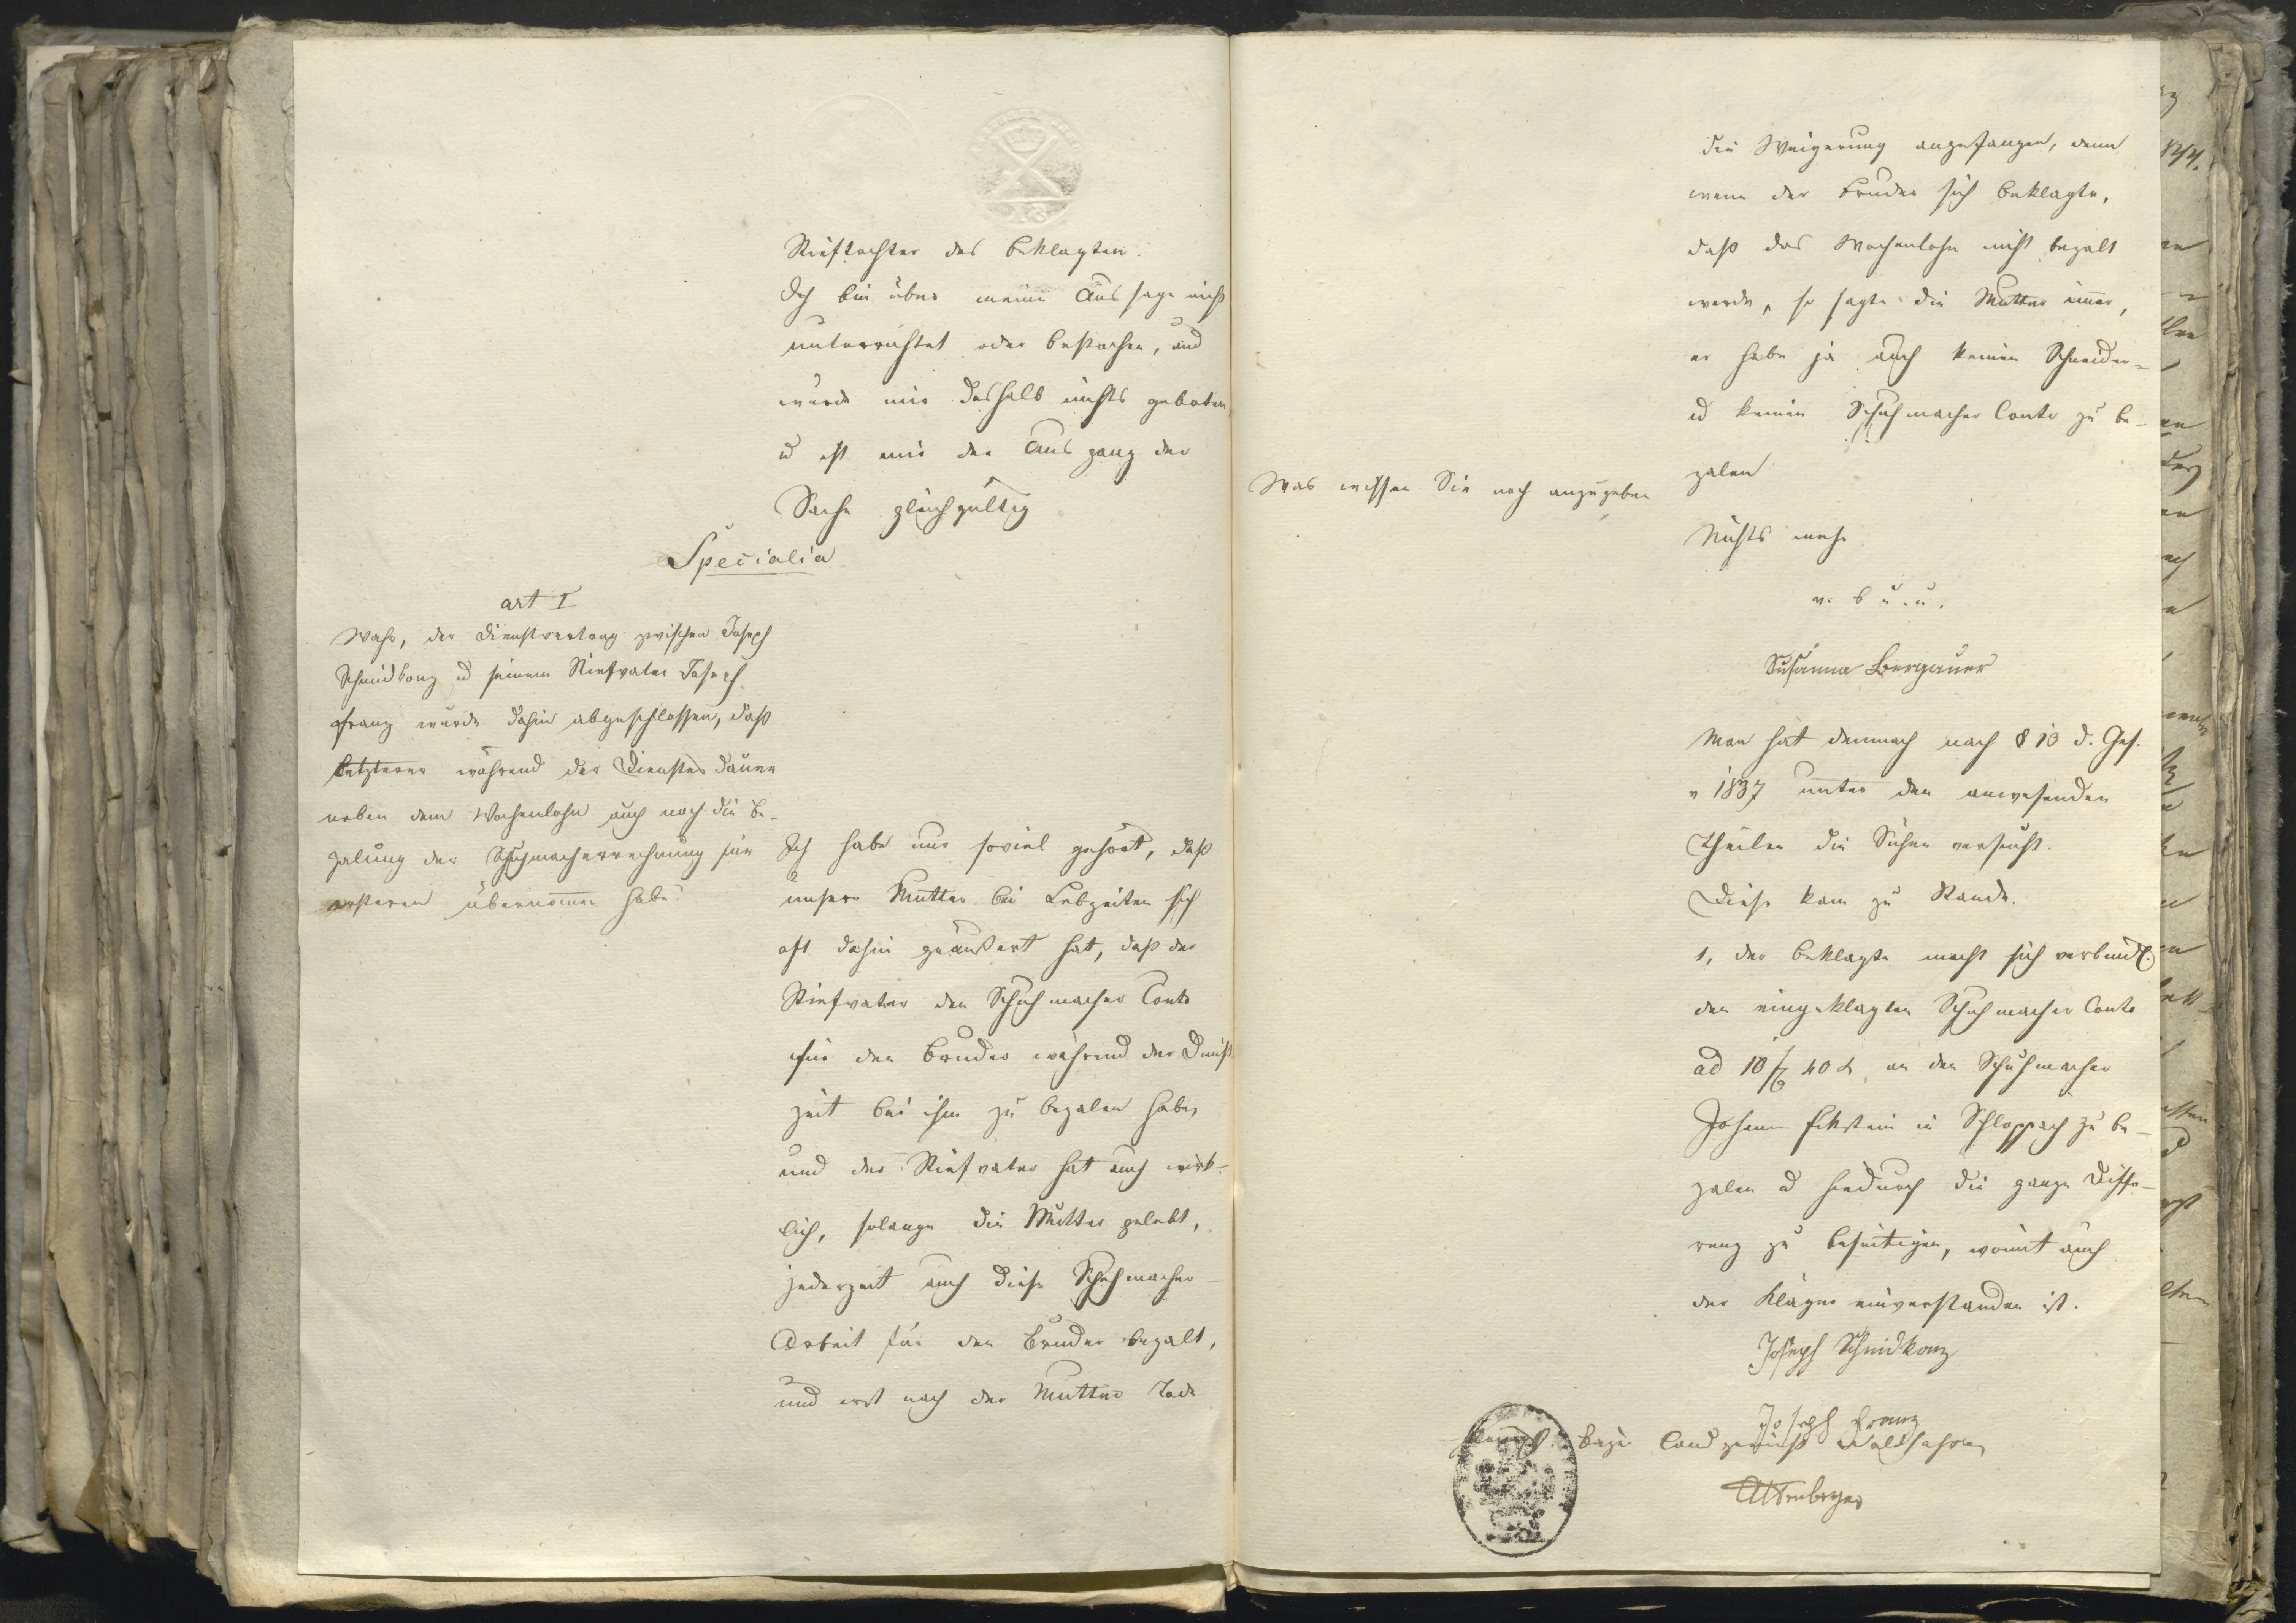 Stieftochter des Beklagten.
Ich bin über meine Aussage nicht
unterrichtet oder bestochen, und
wurde mir deshalb nichts geboten
u ist mir der Ausgang der
Sache gleichgültig
Specialia
art I
Wahr, der Dienstvertrag zwischen Joseph
Schmidkonz u seinem Stiefvater Joseph
Franz wurde dahin abgeschlossen, daß
letzterer während der Dienstesdauer
neben dem Wochenlohn auch noch die Be-
zalung der Schuhmacherrechnung für
ersteren übernomen habe?
Ich habe nur soviel gehört, daß
unsere Mutter bei Lebzeiten sich
oft dahin geäußert hat, daß der
Stiefvater den Schuhmacher Conto
für den Bruder während der Dienst
zeit bei ihm zu bezalen habe,
und der Stiefvater hat auch wirk-
lich, solange die Mutter gelebt,
jederzeit auch diese Schuhmacher-
Arbeit für den Bruder bezalt,
und erst nach der Mutter Tode
die Weigerung angefangen, denn
wenn der Bruder sich beklagte,
daß das Wochenlohn nicht bezalt
werde, so sagte die Mutter imer,
er habe ja auch keinen Schneider-
u keinen Schuhmacher Conto zu be-
zalen
Was wissen Sie noch anzugeben
Nichts mehr
v. b u. u.
Susanna Bergauer
Man hat demnach nach § 13 d. Ges.
v 1837 unter den anwesenden
Theilen die Sühne versucht.
Diese kam zu Stande.
1, der Beklagte macht sich verbindl.
den eingeklagten Schuhmacher Conto
ad 10 f 40 x, an den Schuhmacher
Johann Eckstein in Schloppach zu be-
zalen u hiedurch die ganze Diffe-
renz zu beseitigen, womit auch
der Kläger einverstanden ist.
Joseph Schmidkonz
Joseph Franz
Königl. Bayr Landgericht Waldsassen